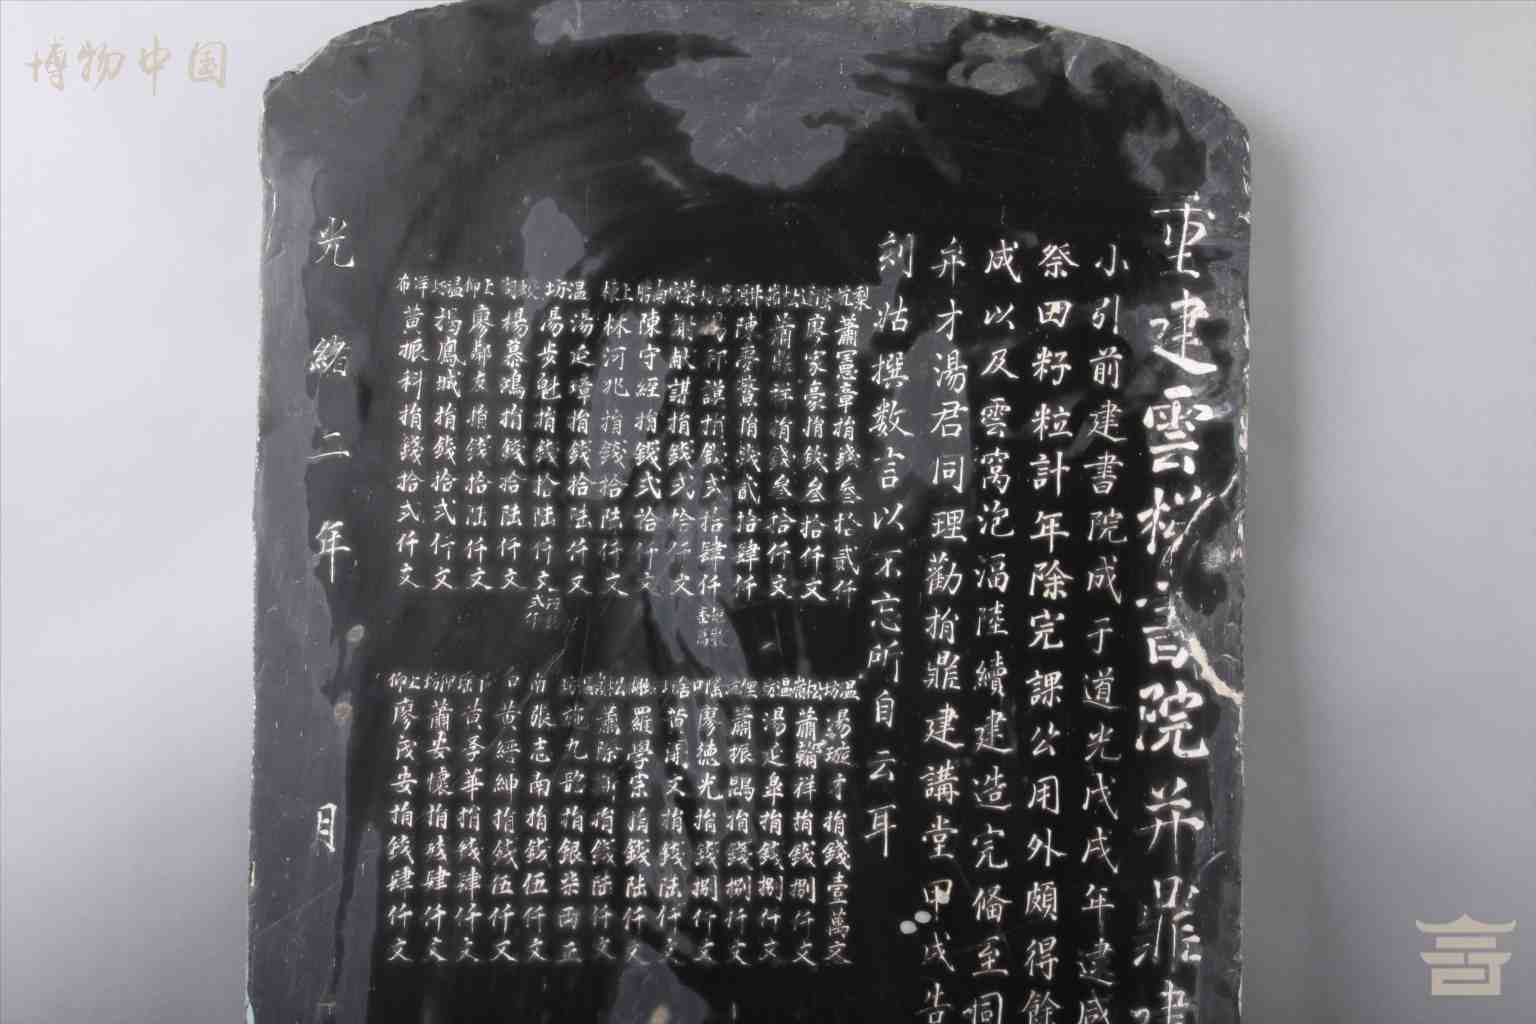 博物中国
重建雲梯書院并鼎建
小引前建書院成于道光戊戌年建咸
祭田籽粒計年除完課公用外頗得餘
成以及雲窩泡湢陸續建造完俻至同
弁才湯君同理勸捐鼎建講堂甲戌告
刻姑撰数言以不忘所自云耳
蕭憲章捐錢叁拾貳仟
廖家豪捐錢叁拾仟文
蕭 祥捐錢叁拾仟文
陳夢 捐錢貳拾肆仟
湯 謨捐錢弍拾肆仟
謝猷謀捐錢弍拾仟文
陳守經捐錢弍拾仟文
林河兆捐錢拾陸仟文
温坊湯延璋捐錢拾陸仟文
湯步魁捐錢拾陸仟文
楊慕鴻捐錢拾陸仟文
廖鄰友捐錢拾陸仟文
捐錢拾弍仟文
黄振科捐錢拾弍仟文
温坊湯璇才捐錢壹萬文
蕭翰祥捐錢捌仟文
温坊湯延臯捐錢捌仟文
蕭振鵾捐錢捌仟文
廖德光捐錢捌仟文
開文捐錢陆仟文
羅學宗捐錢陆仟文
蕭際 捐錢陆仟文
九歌捐銀柒两正
南張志南捐錢伍仟文
黄經紳捐錢伍仟文
黄孝華捐錢肆仟文
蕭安懷捐錢肆仟文
上仰廖茂安捐錢肆仟文
光緒二年 月